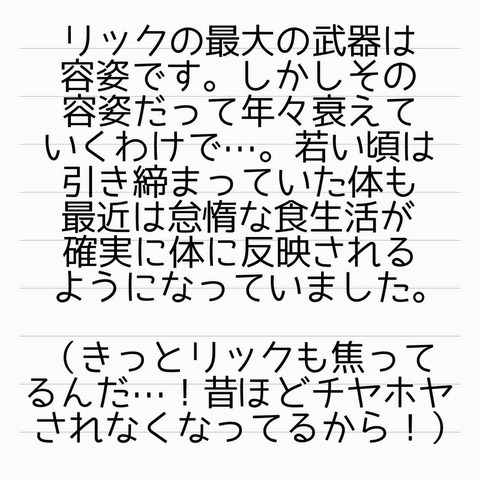 リックの最大の武器は
容姿です。しかしその
容姿だって年々衰えて
いくわけで…。若い頃は
引き締まっていた体も
最近は怠惰な食生活が
確実に体に反映される
ようになっていました。
（きっとリックも焦って
るんだ…！昔ほどチヤホヤ
されなくなってるから！）